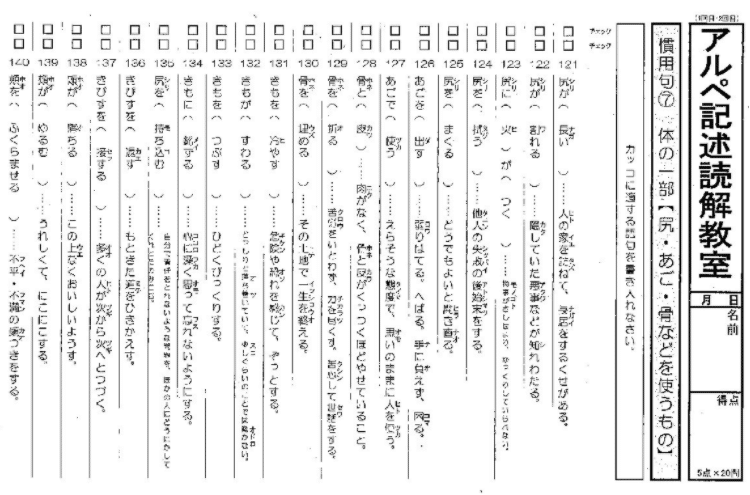 （1回目・2回目）
アルペ記述読解教室
月　日
名前
得点
5点×20問
慣用句⑦　体の一部【尻・あご・骨などを使うもの】
カッコに適する語句を書き入れなさい。
チェック
チェック
□□ 121 尻が（ 長い ）……人の家をたずねて、長居をするくせがある。
□□ 122 尻が（ 割れる ）……隠していた悪事などが知れわたる。
□□ 123 尻に（ 火 ）が（ つく ）……物事がさしせまり、ゆっくりしていられない。
□□ 124 尻を（ 拭う ）……他人の失敗の後始末をする。
□□ 125 尻を（ まくる ）……どうでもよいと開き直る。
□□ 126 あごを（ 出す ）……疲れはてる。へばる。手に負えず、困る。
□□ 127 あごで（ 使う ）……えらそうな態度で、思いのままに人を使う。
□□ 128 骨と（ 皮 ）……肉がなく、骨と皮がくっつくほどやせていること。
□□ 129 骨を（ 折る ）……苦労をいとわず、力を尽くす。苦心して世話をする。
□□ 130 骨を（ 埋める ）……その土地で一生を終える。
□□ 131 きもを（ 冷やす ）……危険や恐れを感じて、ぞっとする。
□□ 132 きもが（ すわる ）……どっしりと落ち着いていて、少しくらいのことでは驚かない。
□□ 133 きもを（ つぶす ）……ひどくびっくりする。
□□ 134 きもに（ 銘ずる ）……心に深く思って忘れないようにする。
□□ 135 尻を（ 持ち込む ）……自分で責任をとれないような問題を、ほかの人にどうにかして
くれとたのみこむ。
□□ 136 きびすを（ 返す ）……もときた道をひきかえす。
□□ 137 きびすを（ 接する ）……多くの人が次から次へとつづく。
□□ 138 頬が（ 落ちる ）……この上なくおいしいようす。
□□ 139 頬が（ ゆるむ ）……うれしくて、にこにこする。
□□ 140 頬を（ ふくらませる ）……不平・不満の顔つきをする。